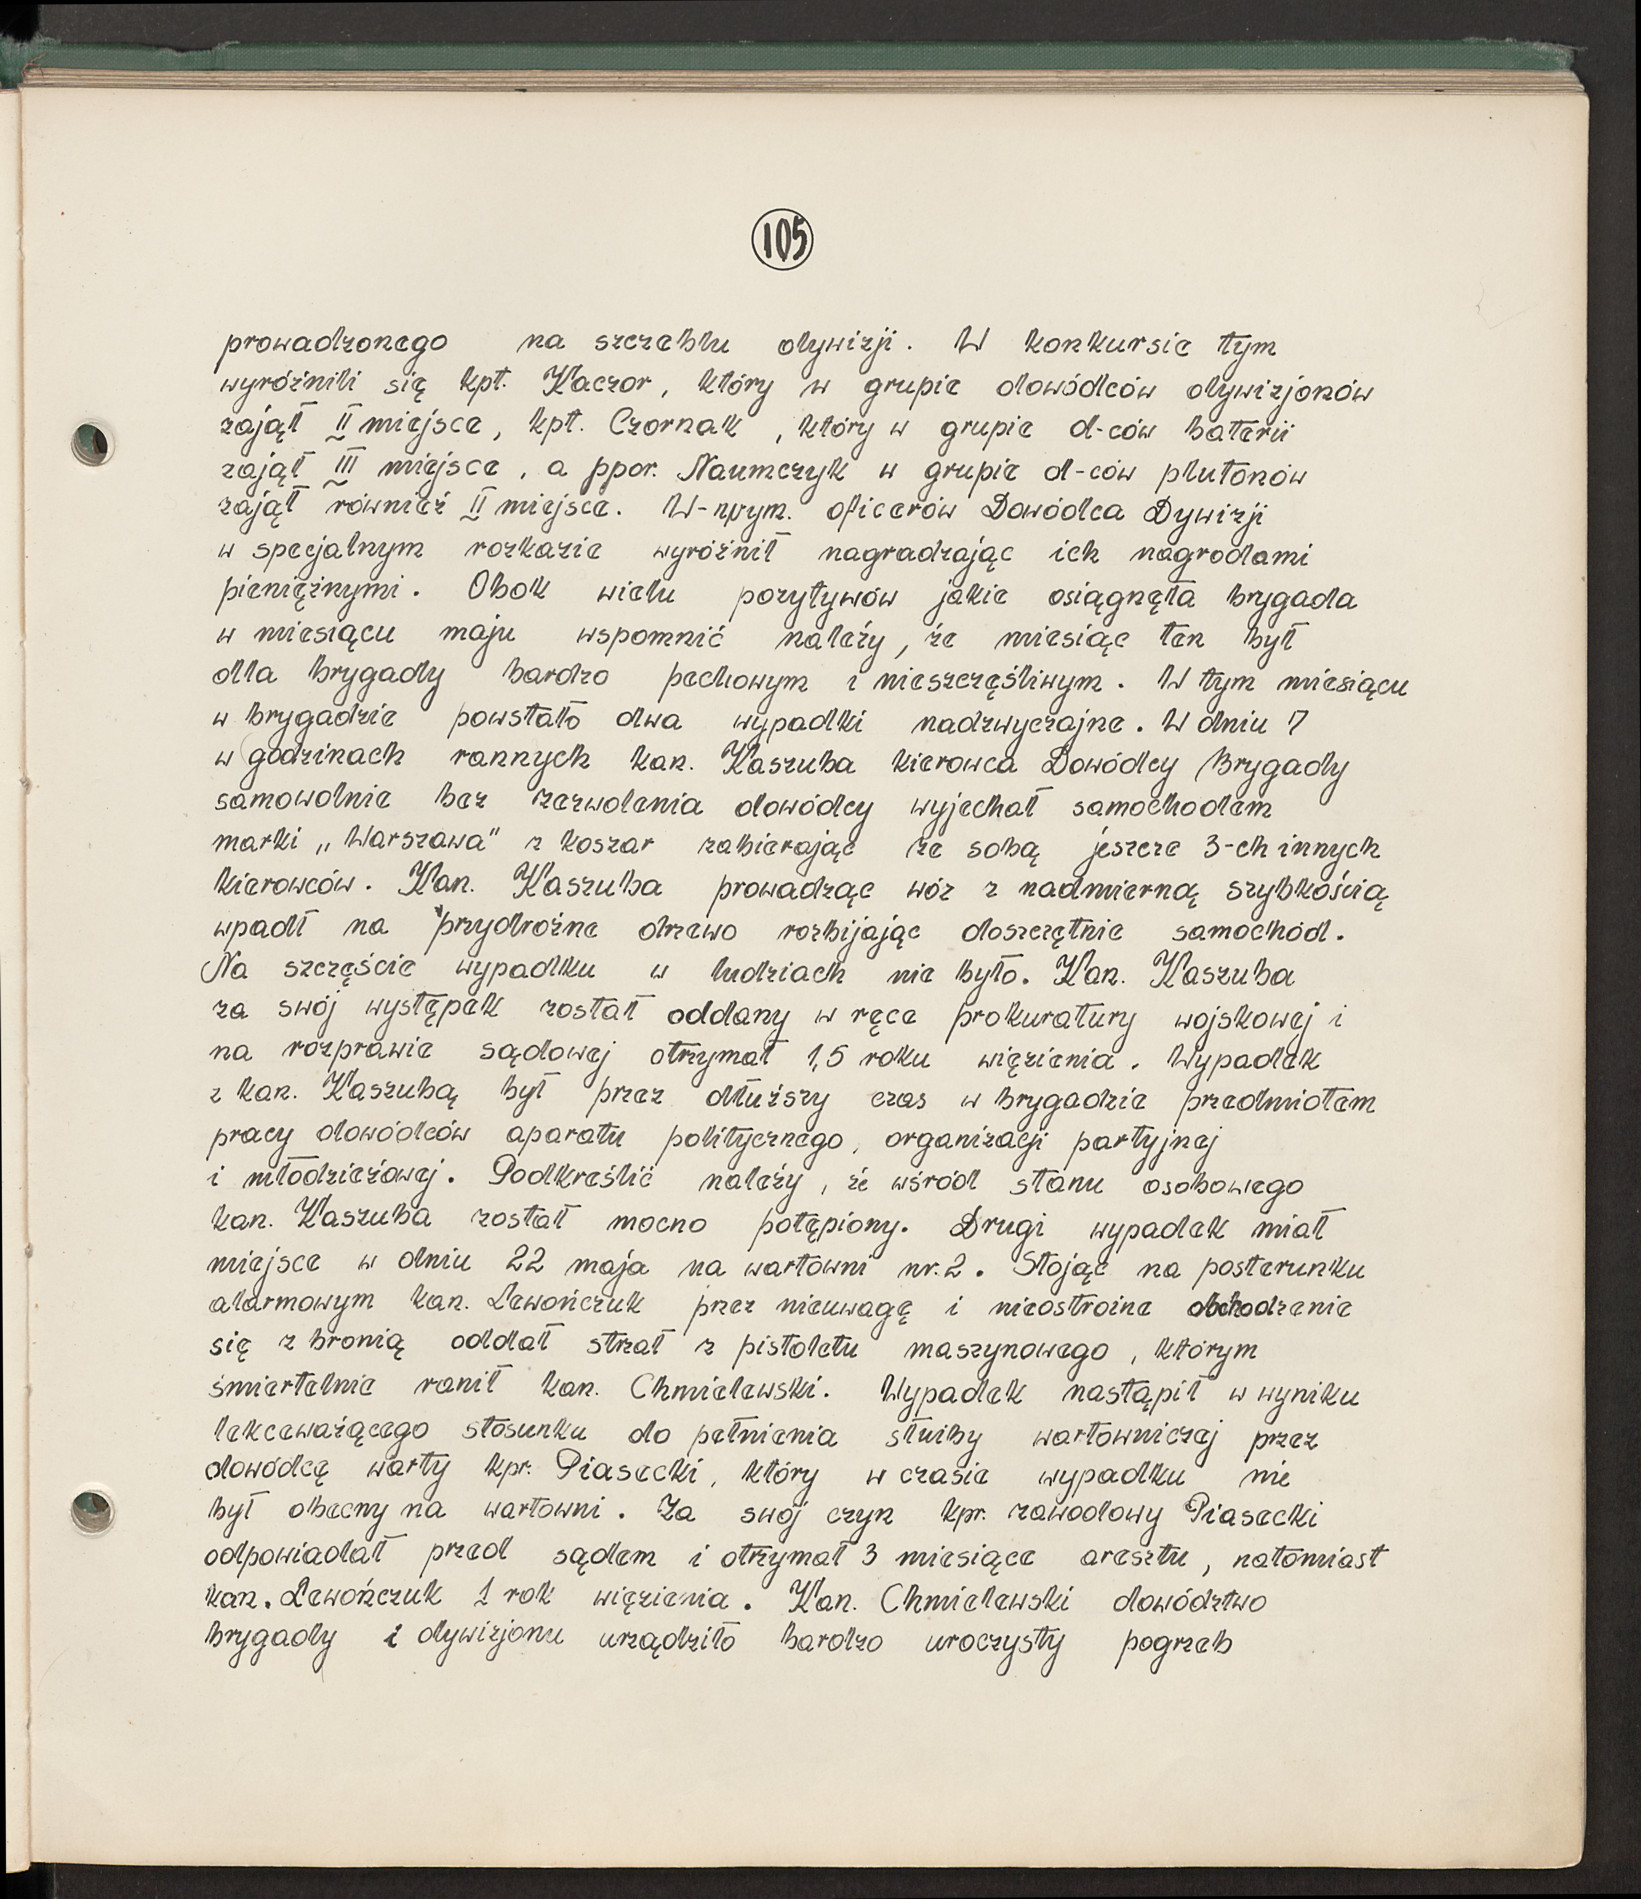 105
prowadzonego na szczeblu dywizji. W konkursie tym
wyróżnili się kpt. Kaczor, który w grupie dowódców dywizjonów
zajął II miejsce, kpt. Czornak, który w grupie d-ców baterii
zajął III miejsce, a ppor. Naumczyk w grupie d-ców plutonów
zajął również II miejsce. W-wym. oficerów Dowódca Dywizji
w specjalnym rozkazie wyróżnił nagradzając ich nagrodami
pieniężnymi. Obok wielu pozytywów jakie osiągnęła brygada
w miesiącu maju wspomnić należy, że miesiąc ten był
dla brygady bardzo pechowym i nieszczęśliwym. W tym miesiącu
w brygadzie powstało dwa wypadki nadzwyczajne. W dniu 7
w godzinach rannych kan. Kaszuba kierowca Dowódcy Brygady
samowolnie bez zezwolenia dowódcy wyjechał samochodem
marki „Warszawa" z koszar zabierając ze sobą jeszcze 3-ch innych
kierowców. Kan. Kaszuba prowadząc wóz z nadmierną szybkością
wpadł na przydrożne drzewo rozbijając doszczętnie samochód.
Na szczęście wypadku w ludziach nie było. Kan. Kaszuba
za swój występek został oddany w ręce prokuratury wojskowej i
na rozprawie sądowej otrzymał 1,5 roku więzienia. Wypadek
z kan. Kaszubą był przez dłuższy czas w brygadzie przedmiotem
pracy dowódców aparatu politycznego, organizacji partyjnej
i młodzieżowej. Podkreślić należy, że wśród stanu osobowego
kan. Kaszuba został mocno potępiony. Drugi wypadek miał
miejsce w dniu 22 maja na wartowni nr. 2. Stojąc na posterunku
alarmowym kan. Lewończuk przez nieuwagę i nieostroine obchodzenie
się z bronią oddał strzał z pistoletu maszynowego, którym
śmiertelnie ranił kan. Chmielewski. Wypadek nastąpił w wyniku
lekceważącego stosunku do pełnienia służby wartowniczej przez
dowódcę warty kpr. Piasecki, który w czasie wypadku nie
był obecny na wartowni. Za swój czyn kpr. zawodowy Piasecki
odpowiadał przed sądem i otrzymał 3 miesiące aresztu, natomiast
kan. Lewończuk 1 rok więzienia. Kan. Chmielewski dowództwo
brygady i dywizjonu urządziło bardzo uroczysty pogrzeb